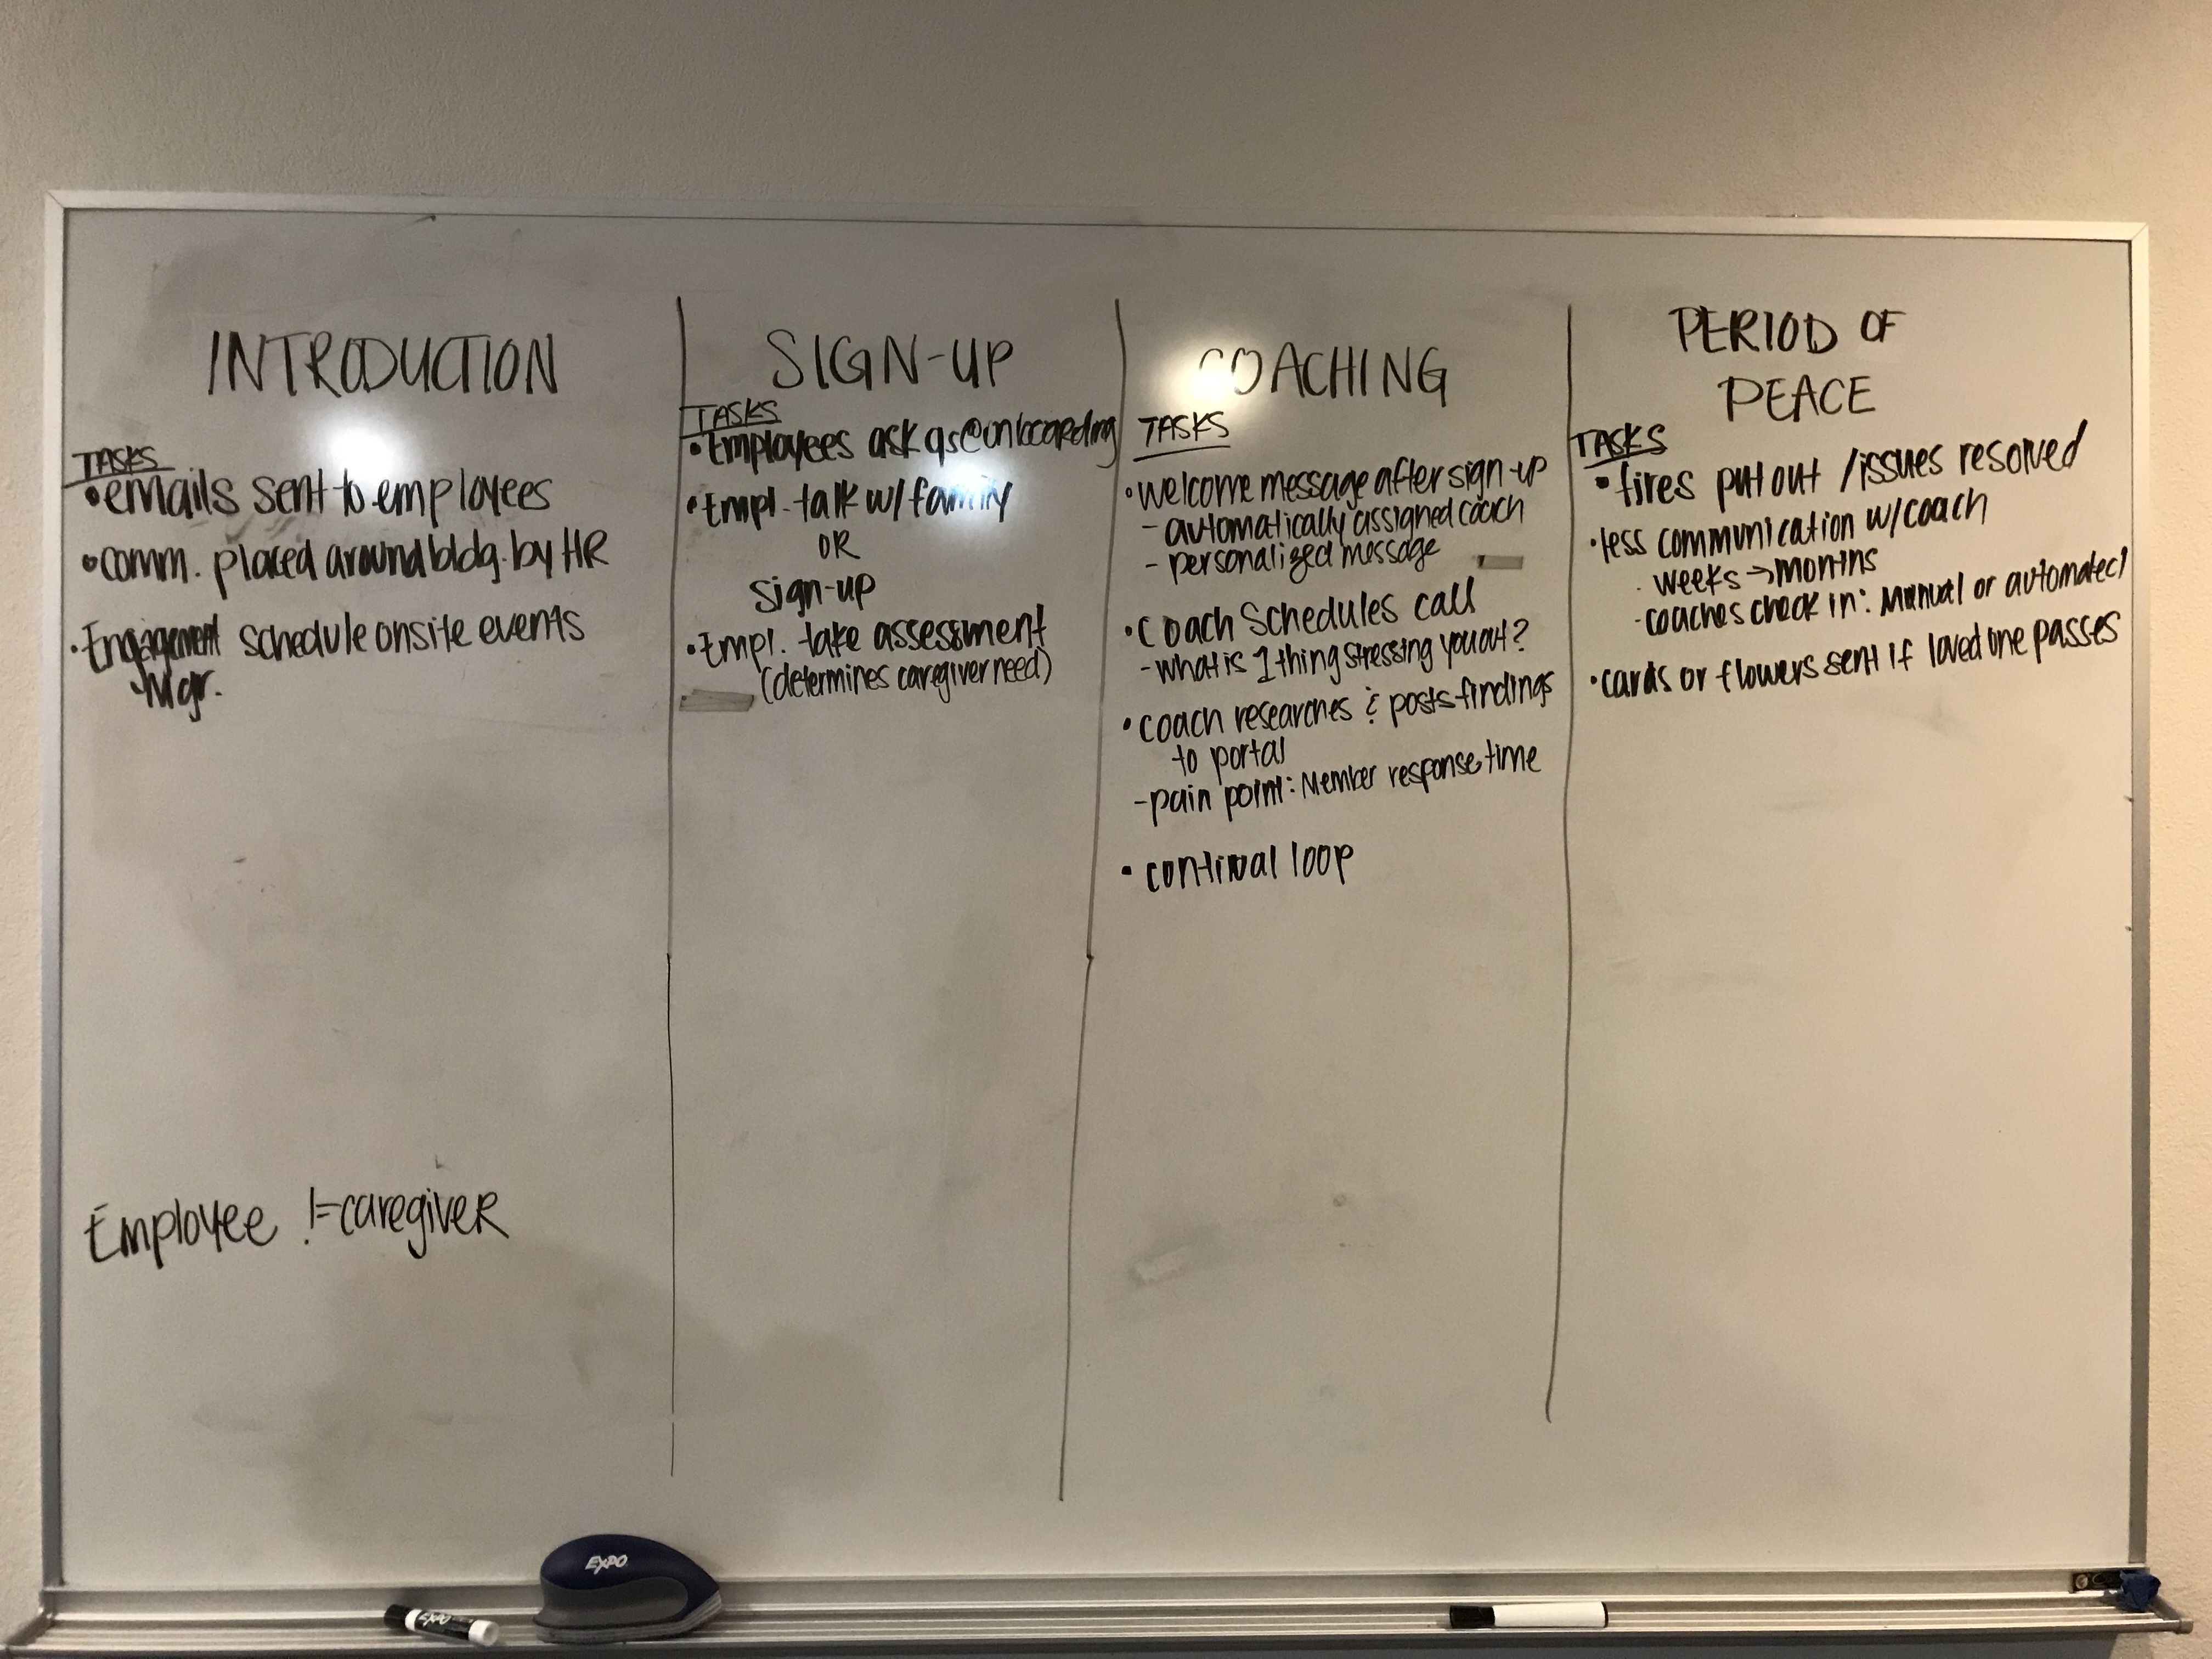 INTRODUCTION
TASKS
• emails sent to employees
• comm. placed around bldg. by HR
• Engagement schedule onsite events
Mgr.
Employee != caregiver
SIGN-UP
TASKS
• Employees ask qs@onboarding
• Empl. talk w/ family
OR
sign-up
• Empl. take assessment
(determines caregiver need)
COACHING
TASKS
• welcome message after sign-up
- automatically assigned coach
- personalized message
• Coach Schedules call
- what is 1 thing stressing you out?
• coach researches & posts findings
to portal
- pain point: Member response time
• continual loop
PERIOD OF
PEACE
TASKS
• fires put out / issues resolved
• less communication w/ coach
- weeks → months
- coaches check in: Manual or automated
• cards or flowers sent if loved one passes
EXPO
EXPO